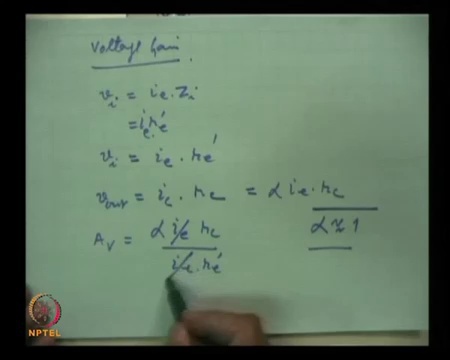 Voltage Gain.
v_i = i_e . Z_i
= i_e r_e'
v_i = i_e . r_e'
v_out = i_c . r_c = α i_e . r_c
A_v = α i_e r_c / i_e . r_e'
α ≈ 1
NPTEL